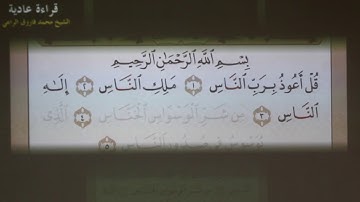 قراءة عادية
الشيخ محمد فاروق الراعي
بِسْمِ ٱللَّهِ ٱلرَّحْمَٰنِ ٱلرَّحِيمِ
قُلْ أَعُوذُ بِرَبِّ ٱلنَّاسِ ١ مَلِكِ ٱلنَّاسِ ٢ إِلَٰهِ
ٱلنَّاسِ ٣ مِن شَرِّ ٱلْوَسْوَاسِ ٱلْخَنَّاسِ ٤ ٱلَّذِي
يُوَسْوِسُ فِي صُدُورِ ٱلنَّاسِ ٥